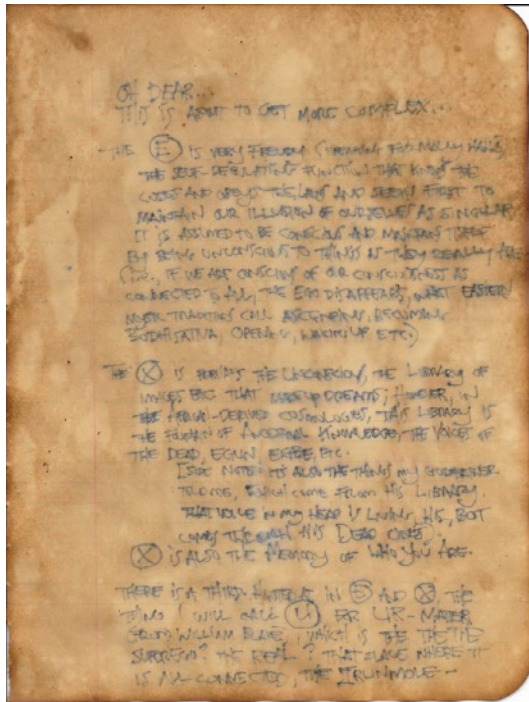 OH DEAR...
THIS IS ABOUT TO GET MORE COMPLEX...
THE (E) IS VERY FREUDY (SPEAKING FORMALLY
THE SELF-REGULATING FUNCTION THAT KNOWS THE
CODES AND OBEYS THE LAWS AND SEEKS FIRST TO
MAINTAIN OUR ILLUSION OF OURSELVES AS SINGULAR
IT IS ASSUMED TO BE CONSCIOUS AND MAINTAINS ITSELF
BY BEING UNCONSCIOUS TO THINGS AS THEY REALLY ARE
IF WE ARE CONSCIOUS OF OUR CONSCIOUSNESS AS
CONNECTED TO ALL, THE EGO DISAPPEARS, WHAT EASTERN
MYSTIC TRADITIONS CALL ASCENDING, BECOMING
BODHISATTVA, OPENING, WAKING UP ETC.)
THE (X) IS PERHAPS THE UNCONSCIOUS, THE LIBRARY OF
IMAGES ETC THAT MAKE UP DREAMS; HOWEVER, IN
THE AFRICAN-DERIVED COSMOLOGIES, THIS LIBRARY IS
THE DOMAIN OF ANCESTRAL KNOWLEDGE, THE VOICES OF
THE DEAD, EGUN, EGBE, ETC.
[SIDE NOTE: IT'S ALSO THE THINGS MY GODFATHER
TOLD ME, WHICH COME FROM HIS LIBRARY.
THAT VOICE IN MY HEAD IS LIVING, HIS, BUT
COMES THROUGH HIS DEAD ONES]
(X) IS ALSO THE MEMORY OF WHO YOU ARE.
THERE IS A THIRD IN AND (X) THE
THING I WILL CALL (U) OR UR-MATTER
WILLIAM BLAKE, WHICH IS THE
SUPREME? THE REAL? THAT PLACE WHERE IT
IS ALL CONNECTED, THE